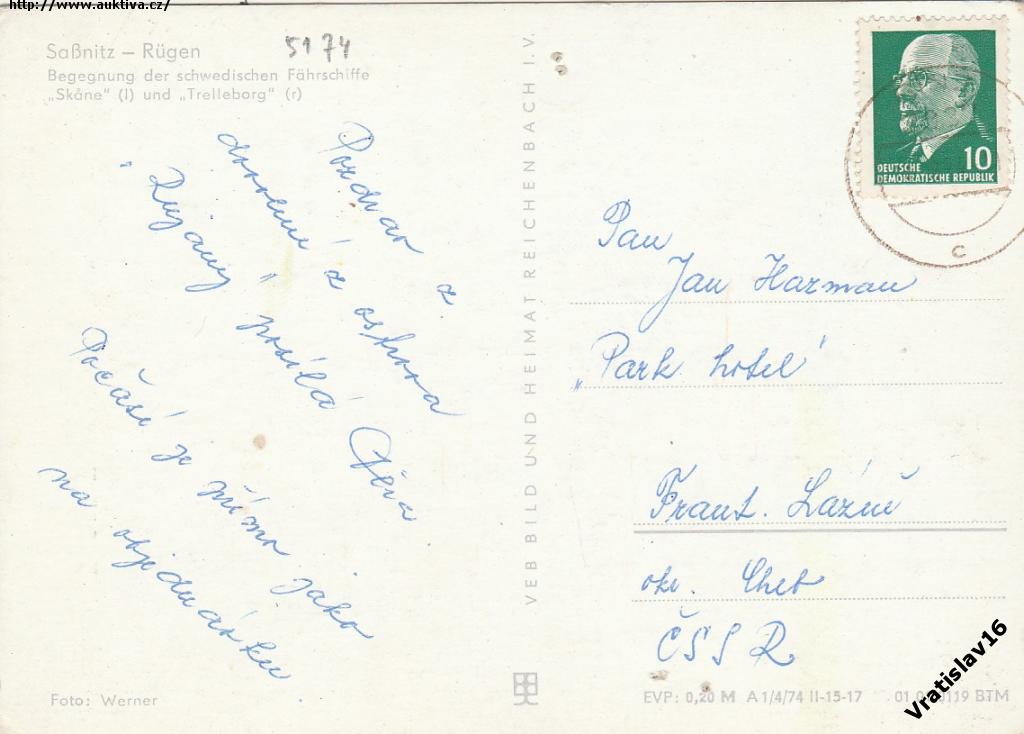 http://www.auktiva.cz/
Saßnitz – Rügen
Begegnung der schwedischen Fährschiffe
„Skåne" (l) und „Trelleborg" (r)
5174
Pozdrav z
dovolené z ostrova
„Rujany" posílá Věra
Počasí je mimo jako
na objednávku.
VEB BILD UND HEIMAT REICHENBACH I. V.
10
DEUTSCHE
DEMOKRATISCHE REPUBLIK
C
Pan
Jan Harman
„Park hotel"
Frant. Lázně
okr. Cheb
ČSSR
Foto: Werner
EVP: 0,20 M A 1/4/74 II-15-17
BTM
Vratislav16